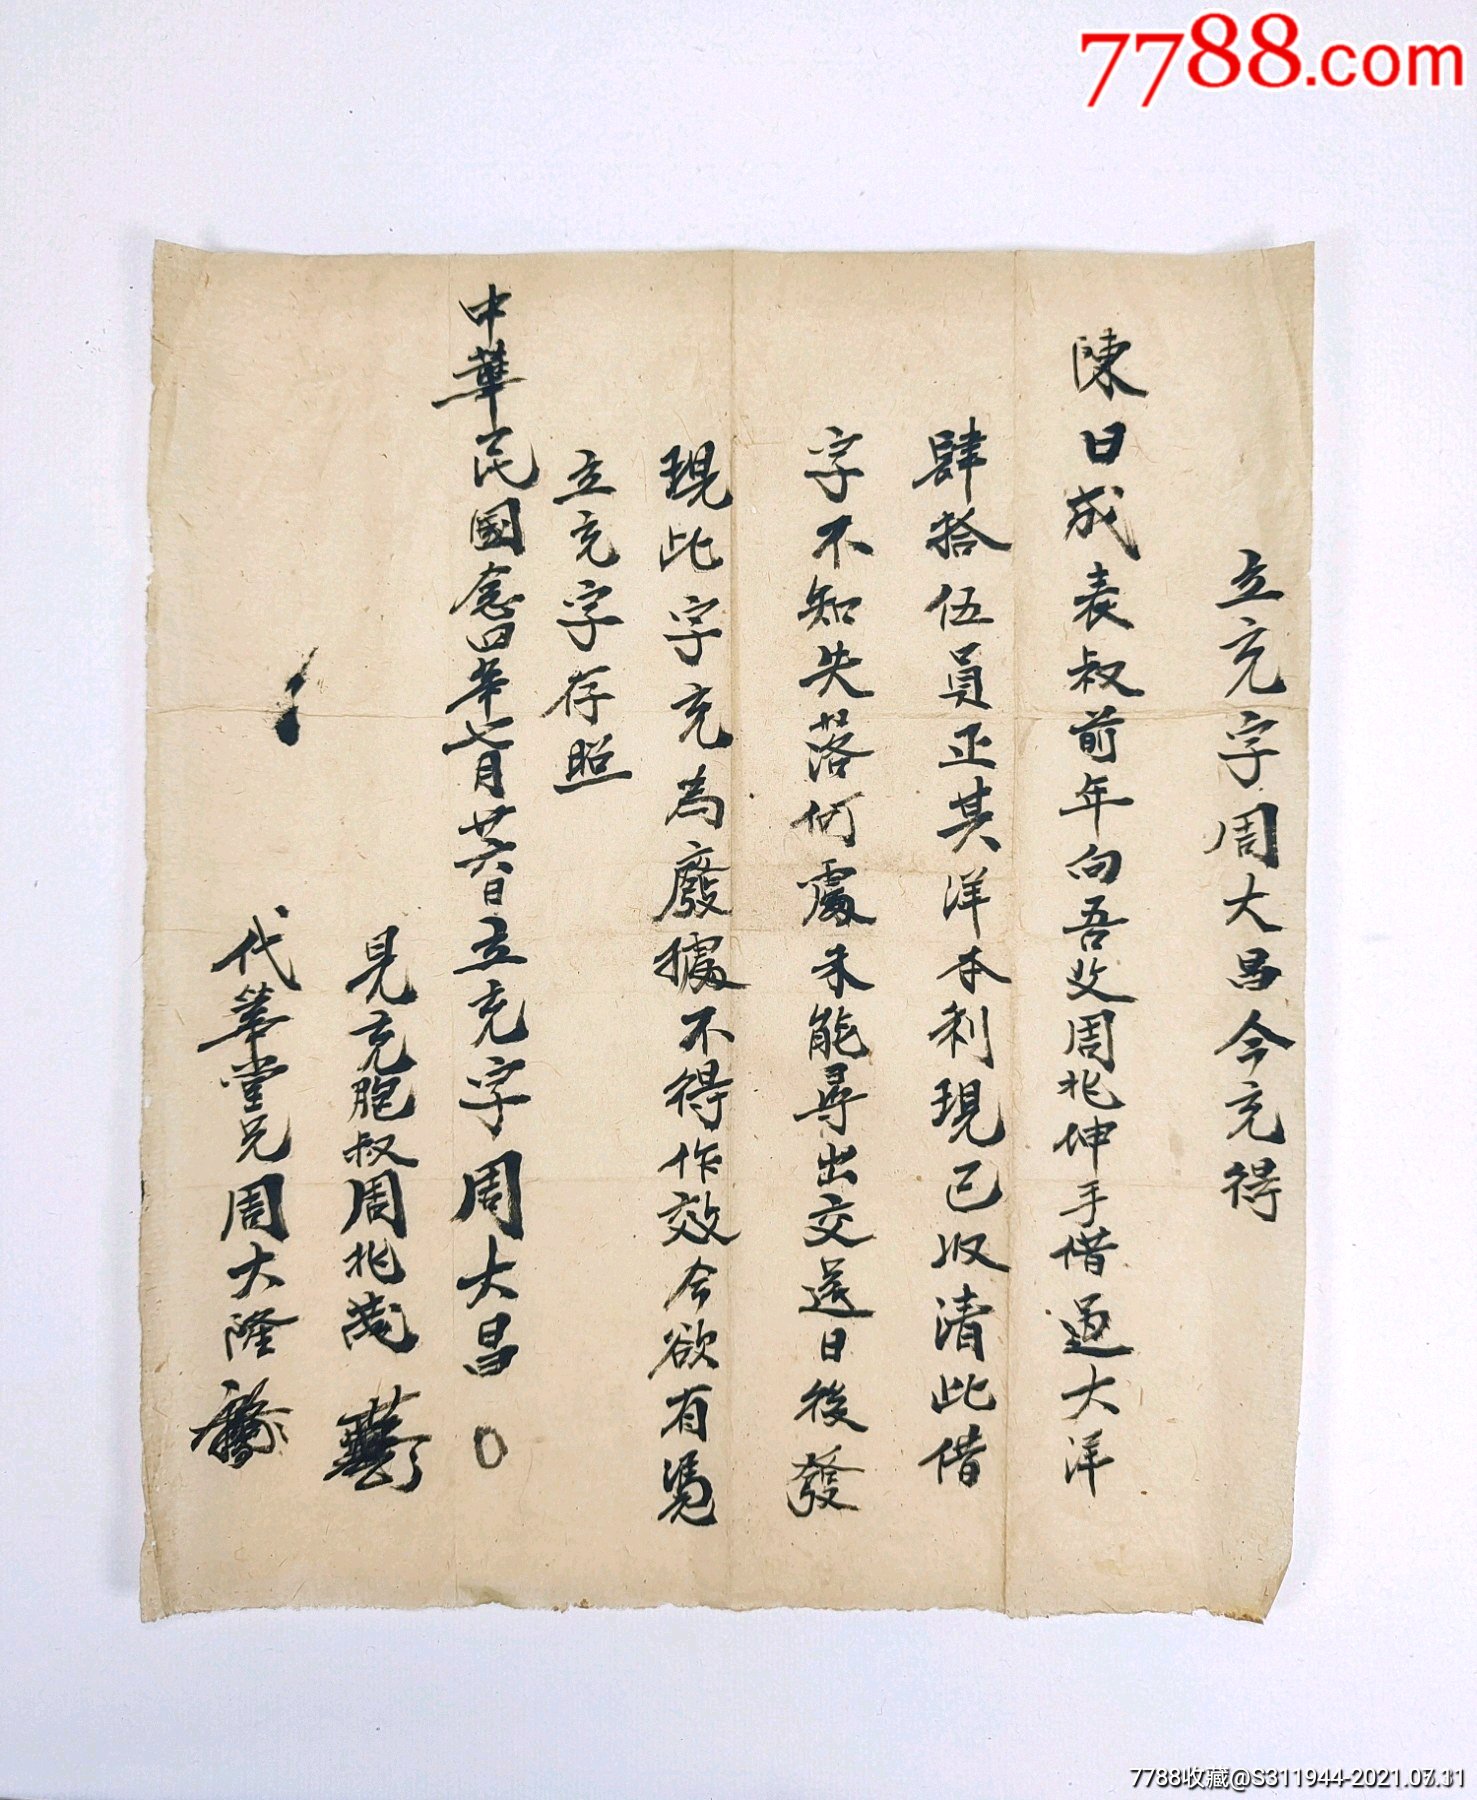 7788.com
立充字周大昌今充得
陳日成表叔前年向吾父周兆坤手借過大洋
肆拾伍員正其洋本利現已收清此借
字不知失落何處未能尋出交送日後發
現此字充為廢據不得作效今欲有憑
立充字存照
中華民國念四年七月廿六日立充字周大昌
見充胞叔周兆茂
代筆堂兄周大隆
7788收藏@S311944-2021.07.31